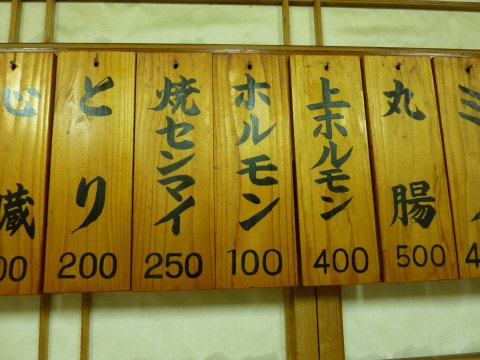 心臓
00
とり
200
焼センマイ
250
ホルモン
100
上ホルモン
400
丸腸
500
ミノ
4